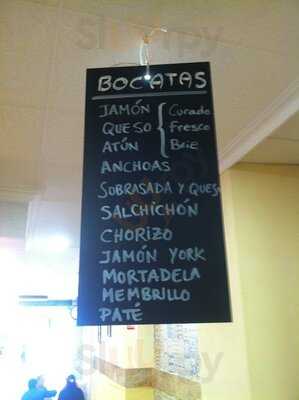 BOCATAS
JAMÓN { Curado
QUESO { Fresco
ATÚN { Brie
ANCHOAS
SOBRASADA Y QUESO
SALCHICHÓN
CHORIZO
JAMÓN YORK
MORTADELA
MEMBRILLO
PATÉ